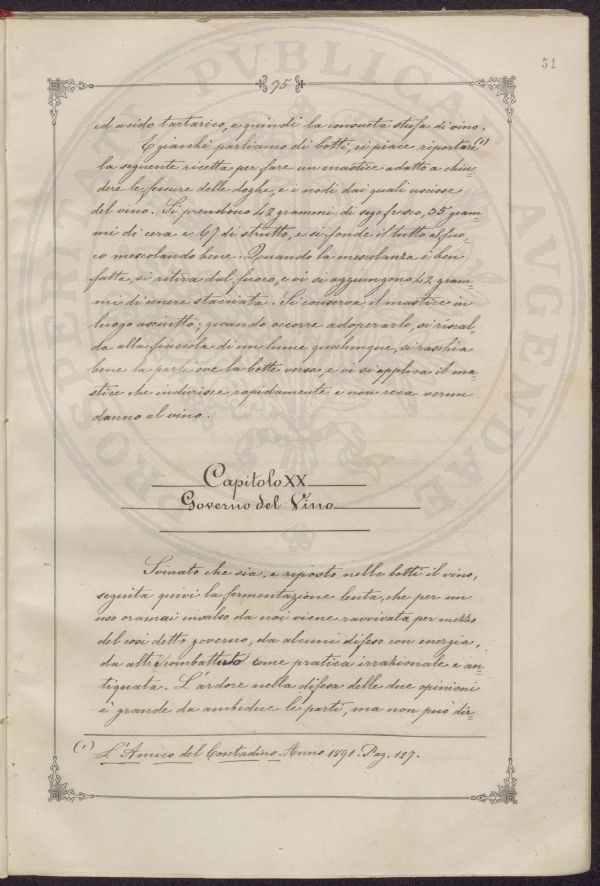 51
95
ed acido tartarico, e quindi la consueta stufa di vino.
E giacchè parliamo di botti, ci piace riportare (1)
la seguente ricetta per fare un mastice adatto a chiu-
dere le fessure delle doghe, e i nodi dai quali uscisse
del vino. Si prendono 42 grammi di sego fresco, 35 gram-
mi di cera e 67 di strutto, e si fonde il tutto al fuo-
co mescolando bene. Quando la mescolanza è ben
fatta, si ritira dal fuoco, e vi si aggiungono 42 gram-
mi di cenere stacciata. Si conserva il mastice in
luogo asciutto; quando occorre adoperarlo, si riscal-
da alla fiaccola di un lume qualunque, si raschia
bene la parte ove la botte versa, e vi si applica il ma-
stice che indurisce rapidamente e non reca verun
danno al vino.
Capitolo XX
Governo del Vino
Svinato che sia, e riposto nelle botti il vino,
seguita quivi la fermentazione lenta, che per un
uso oramai invalso da noi viene ravvivata per mezzo
del così detto governo, da alcuni difeso con energia,
da altri combattuto come pratica irrazionale e an-
tiquata. L'ardore nella difesa delle due opinioni
è grande da ambedue le parti, ma non può dir-
(1) L'Amico del Contadino. Anno 1891. Pag. 127.
PROSPERITATI PVBLICAE AVGENDAE